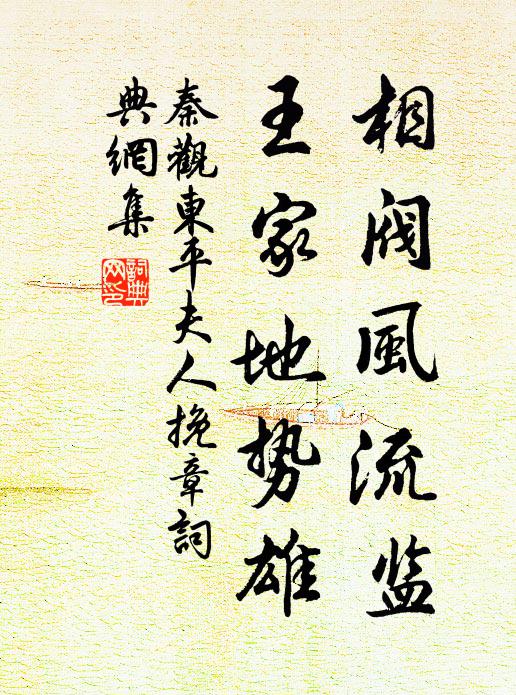 相阀風流监
王家地势雄
秦觀東平夫人挽章詞
典網集
詞典网印